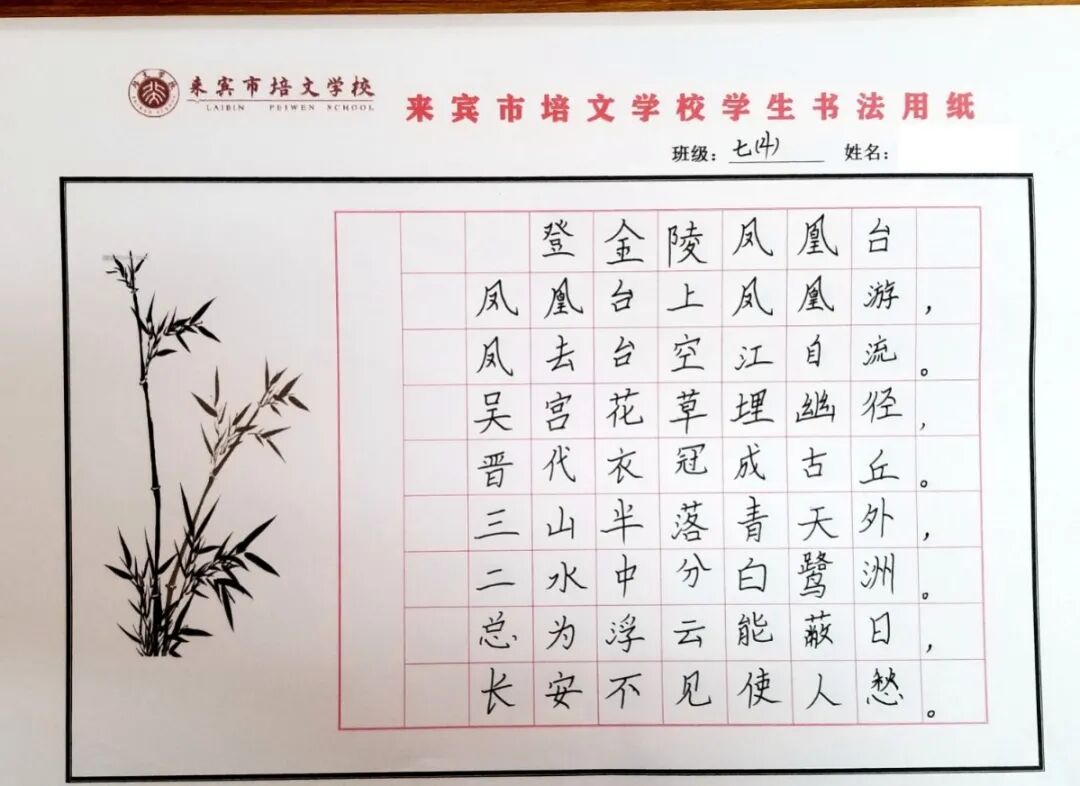 来宾市培文学校
LAIBIN PEIWEN SCHOOL
来宾市培文学校学生书法用纸
班级：七(4) 姓名：
登金陵凤凰台
凤凰台上凤凰游，
凤去台空江自流。
吴宫花草埋幽径，
晋代衣冠成古丘。
三山半落青天外，
二水中分白鹭洲。
总为浮云能蔽日，
长安不见使人愁。